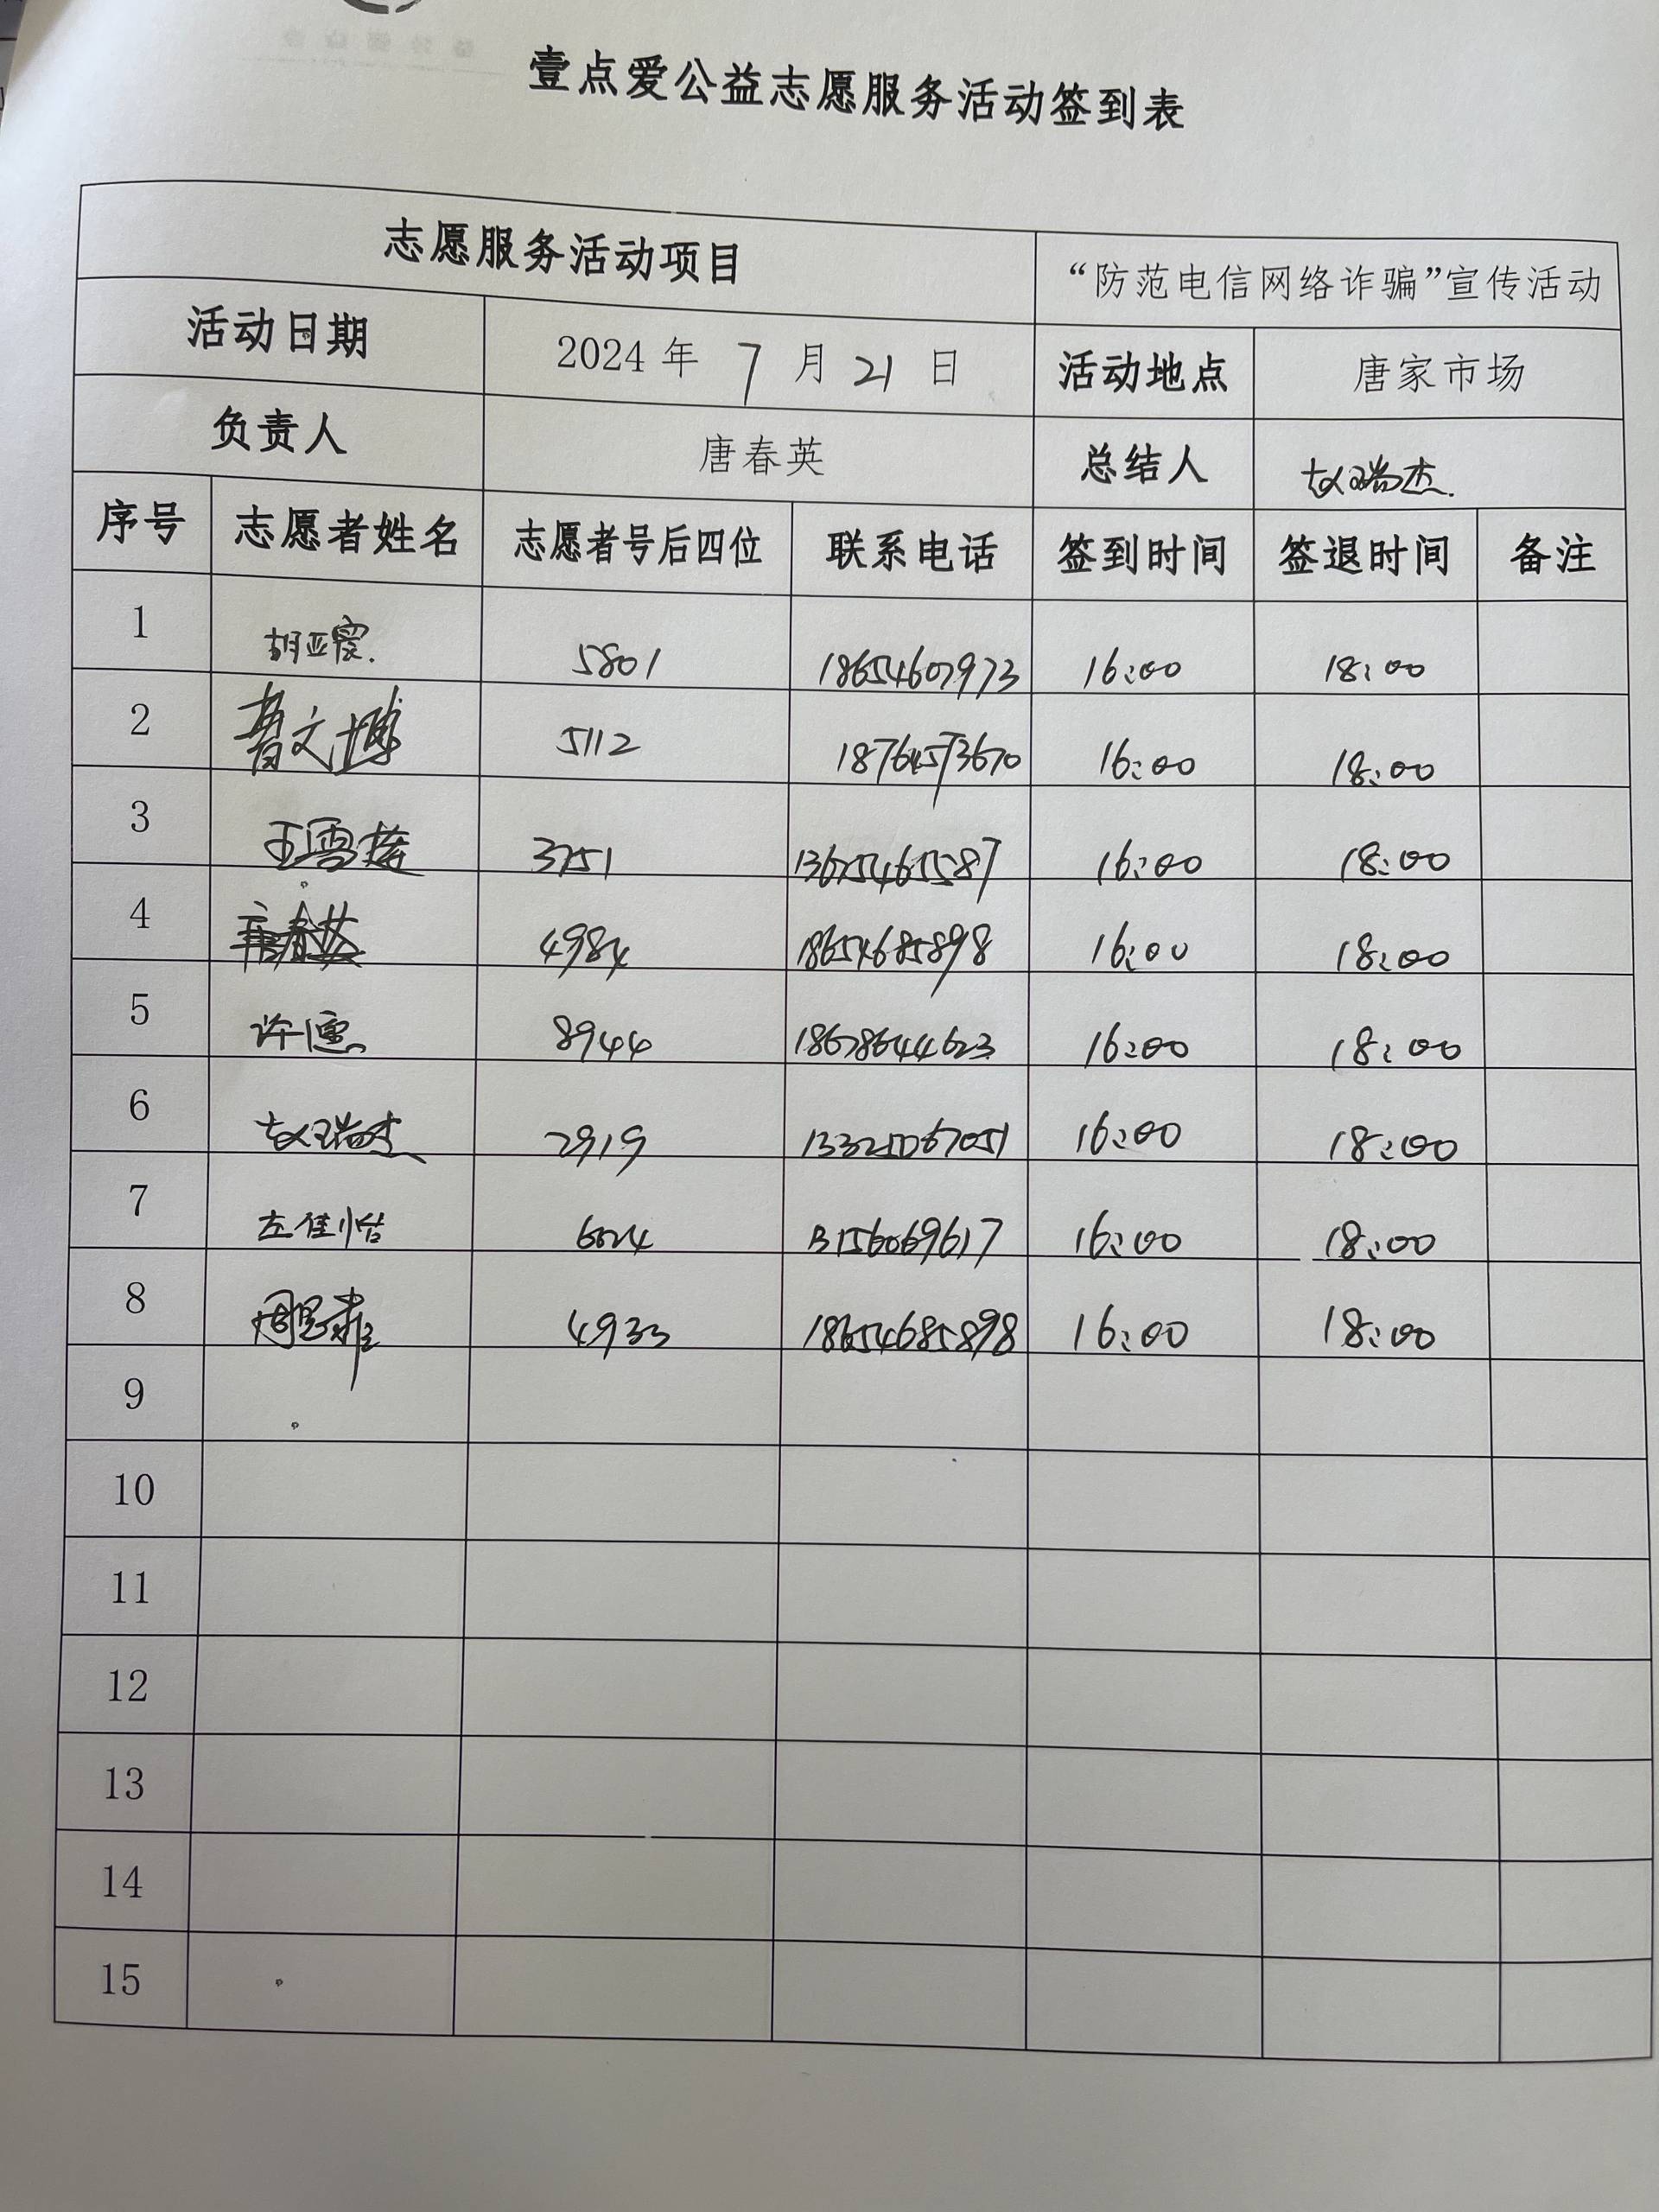 壹点爱公益志愿服务活动签到表
志愿服务活动项目 “防范电信网络诈骗”宣传活动
活动日期 2024年 7月 21日 活动地点 唐家市场
负责人 唐春英 总结人 赵瑞杰
序号 志愿者姓名 志愿者号后四位 联系电话 签到时间 签退时间 备注
1 5801 18654607973 16:00 18:00
2 曹文博 5112 18764573670 16:00 18:00
3 3751 13675465587 16:00 18:00
4 唐春英 4984 18654685898 16:00 18:00
5 8944 18678644623 16:00 18:00
6 赵瑞杰 2919 13325067051 16:00 18:00
7 左佳怡 6024 16:00 18:00
8 4933 18654685898 16:00 18:00
9
10
11
12
13
14
15